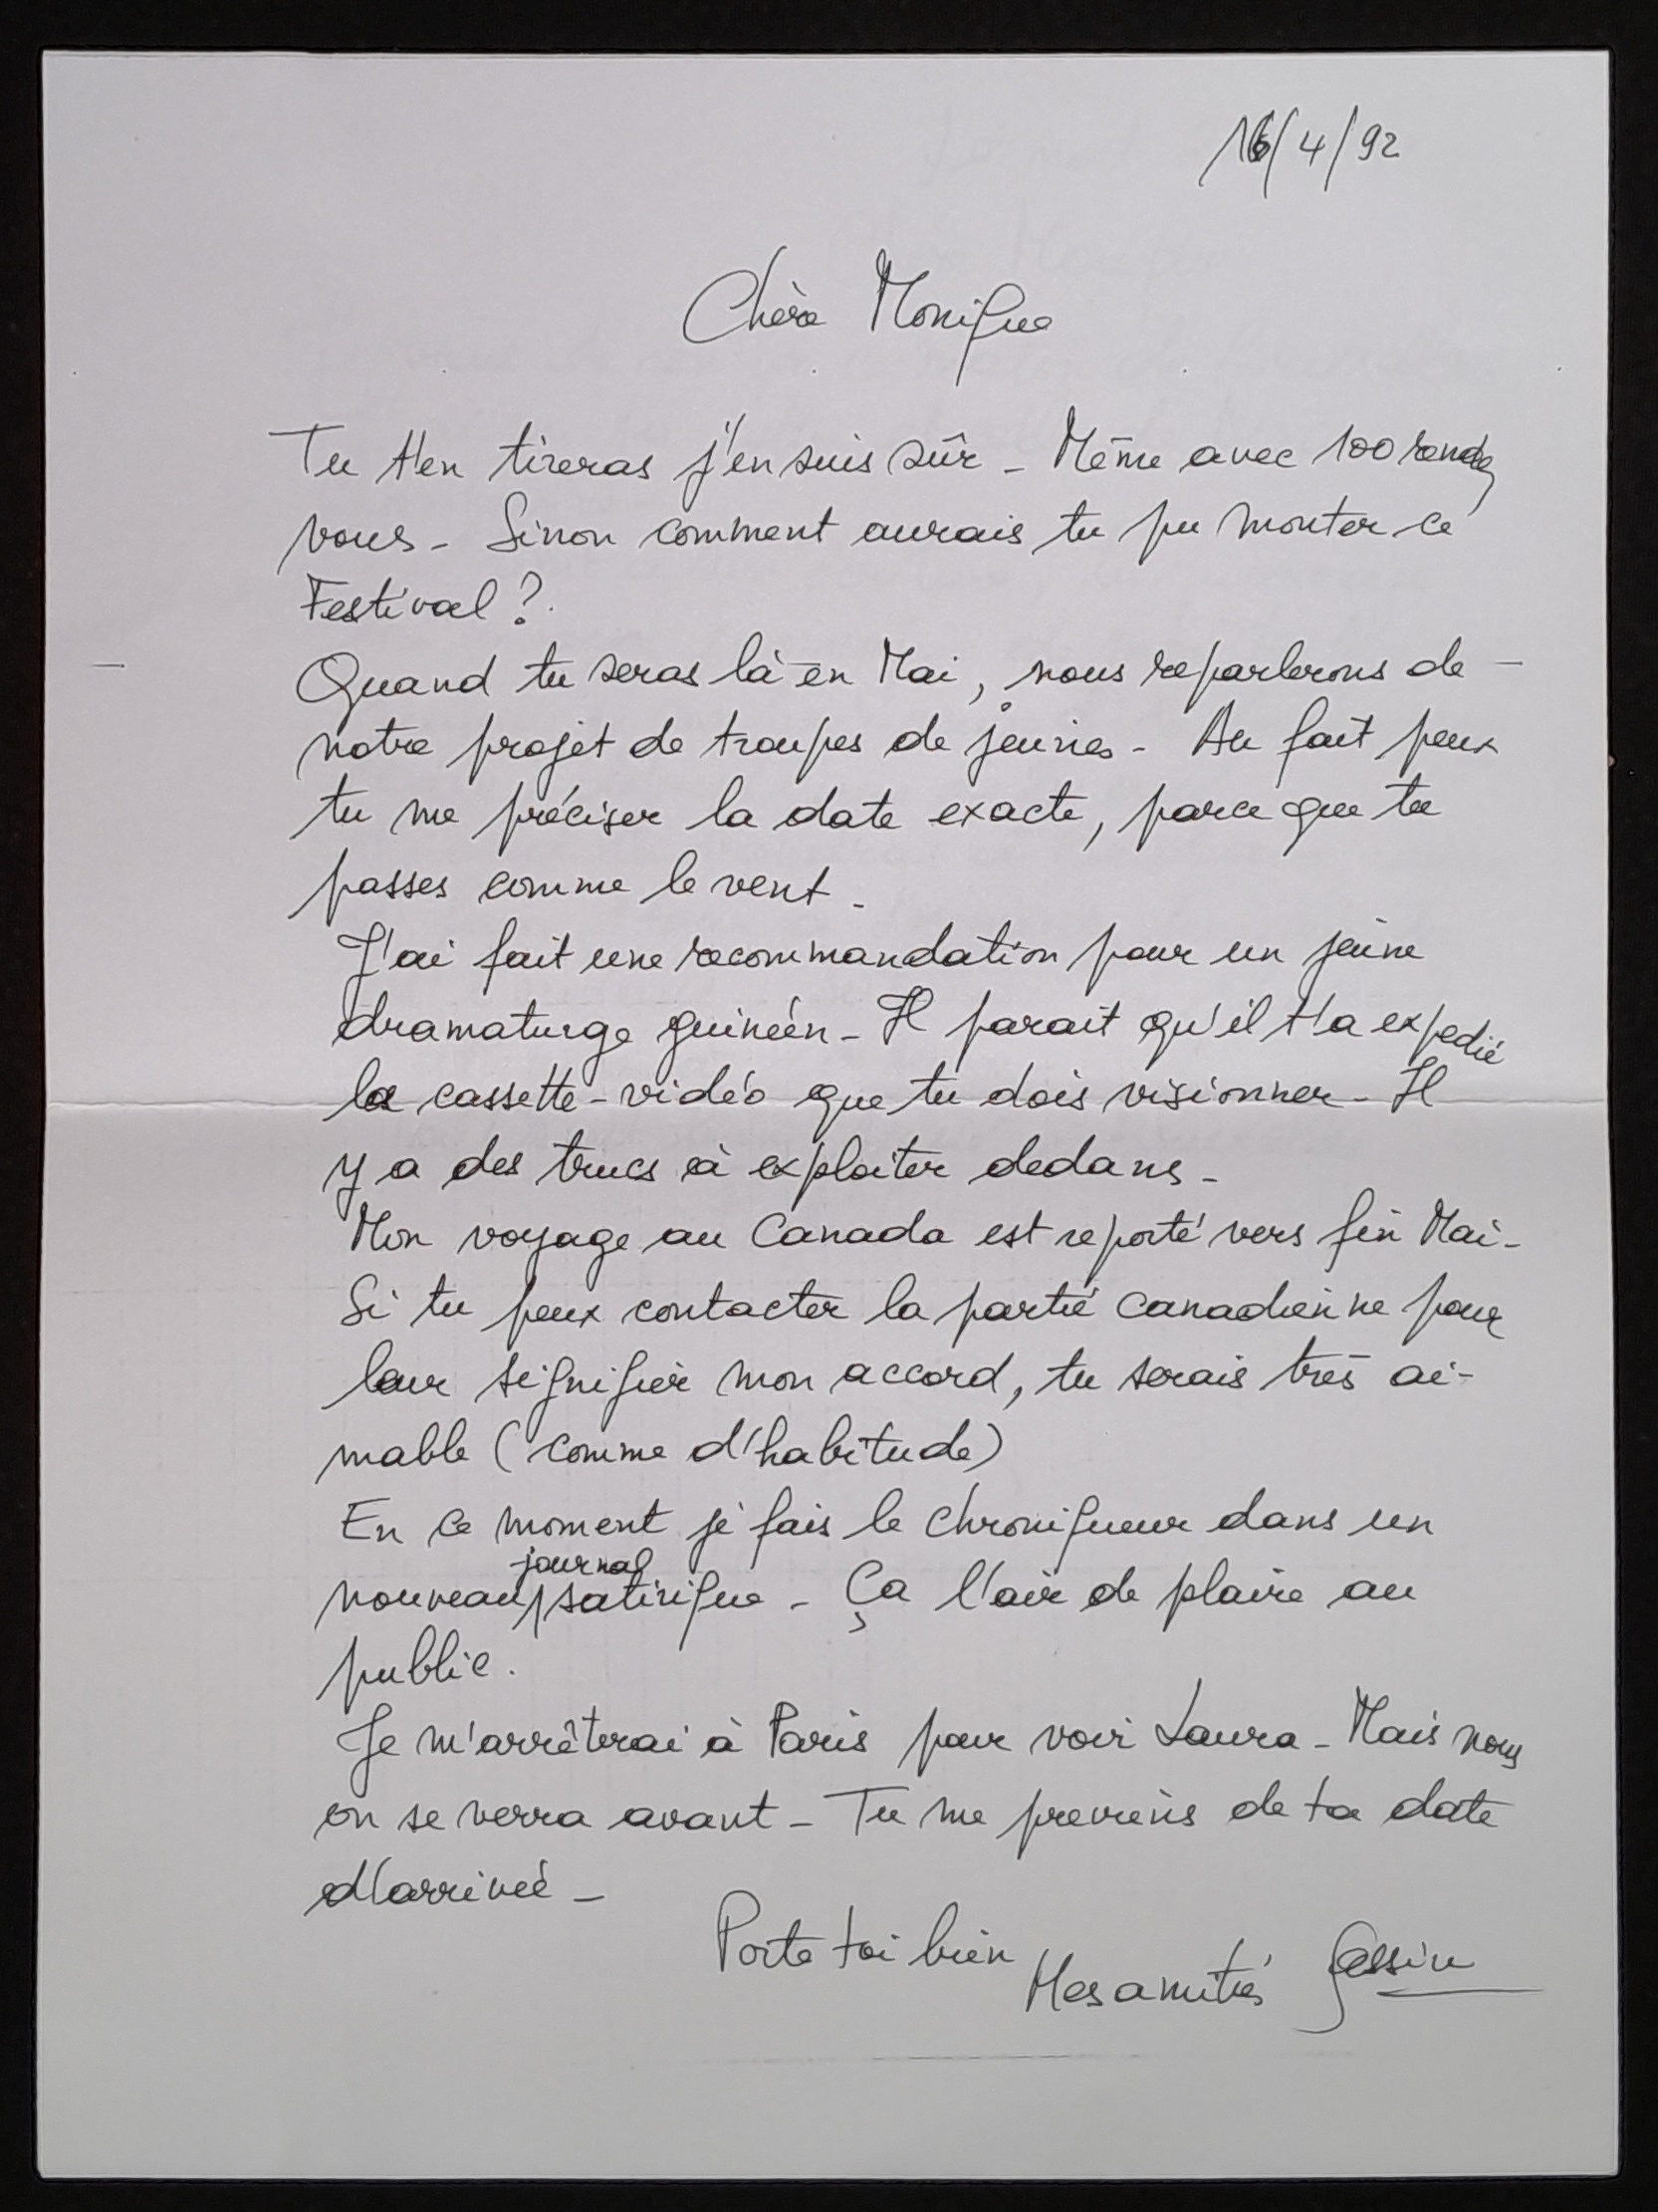 16/4/92
Chère Monique
Tu t'en tireras j'en suis sûr - Même avec 100 rendez
vous - Sinon comment aurais tu pu monter ce
Festival ?
Quand tu seras là en Mai, nous reparlerons de
notre projet de troupes de jeunes - Au fait peux
tu me préciser la date exacte, parce que tu
passes comme le vent -
J'ai fait une recommandation pour un jeune
dramaturge guinéen - Il parait qu'il t'a expedié
la cassette-vidéo que tu dois visionner - Il
y a des trucs à exploiter dedans -
Mon voyage au Canada est reporté vers fin Mai -
Si tu peux contacter la partie canadienne pour
leur signifier mon accord, tu serais très ai-
mable (comme d'habitude)
En ce moment je fais le chroniqueur dans un
nouveau journal satirique - Ça l'air de plaire au
public.
Je m'arrêterai à Paris pour voir Laura - Mais nous
on se verra avant - Tu me previens de ta date
d'arrivée -
Porte toi bien
Mes amitiés